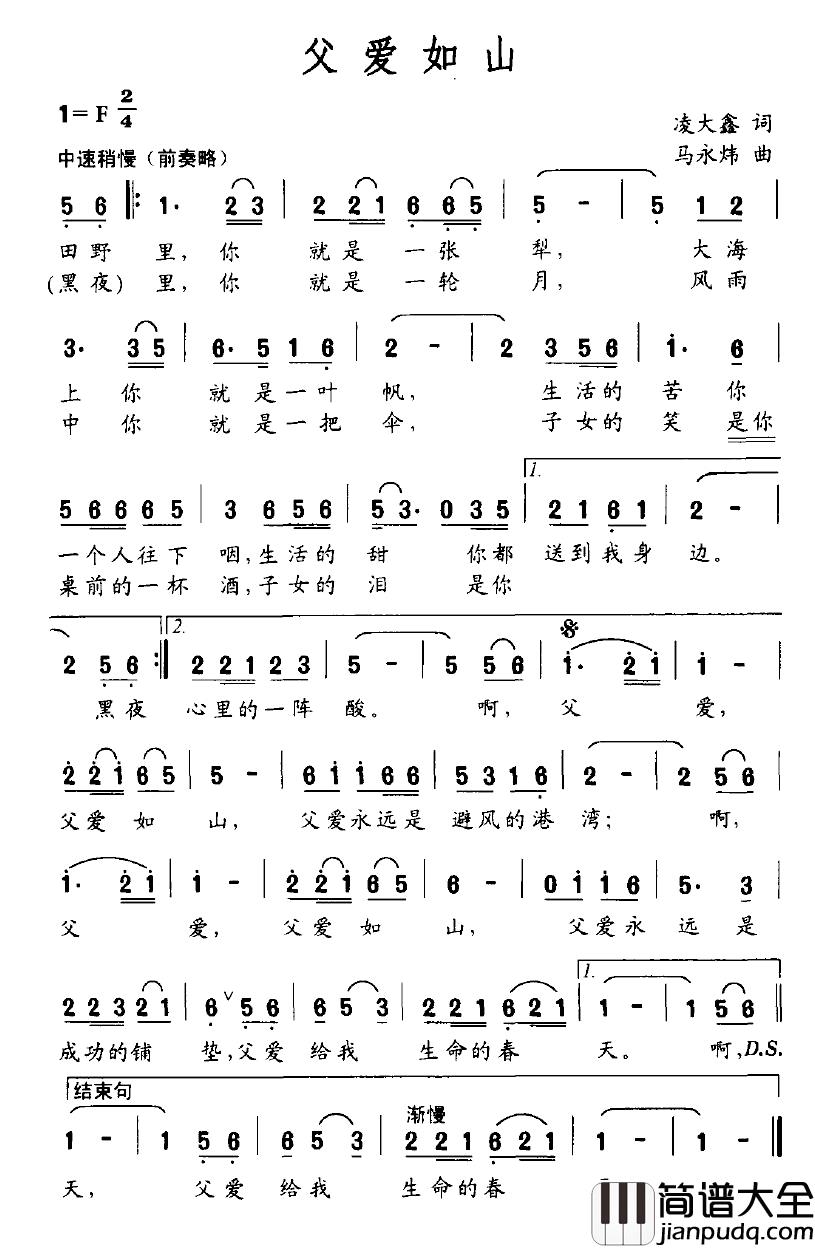 父爱如山
1=F 2/4
凌大鑫 词
中速稍慢（前奏略）
马永炜 曲
5 6 1· 2 3 2 2 1 6 6 5 5 - 5 1 2
田野 里，你 就是 一张 犁， 大海
(黑夜) 里，你 就是 一轮 月， 风雨
3· 3 5 6· 5 1 6 2 - 2 3 5 6 1· 6
上 你 就 是 一 叶 帆， 生活的 苦 你
中 你 就 是 一 把 伞， 子女的 笑 是你
1.
5 6 6 6 6 5 3 6 5 6 5 3· 0 3 5 2 1 6 1 2 -
一个人往下 咽，生活的 甜 你都 送到我身 边。
桌前的一杯 酒，子女的 泪 是你
2.
2 5 6 2 2 2 1 2 3 5 - 5 5 6 1· 2 1 1 -
黑夜 心里的一阵 酸。 啊， 父 爱，
2 2 1 6 5 5 - 6 1 1 6 6 5 3 1 6 2 - 2 5 6
父爱 如 山， 父爱永远是 避风的港 湾； 啊，
1· 2 1 1 - 2 2 1 6 5 6 - 0 1 1 6 5· 3
父 爱， 父爱 如 山， 父爱永 远 是
1.
2 2 3 2 1 6 ∨ 5 6 6 5 3 2 2 1 6 2 1 1 - 1 5 6
成功的铺 垫，父爱 给我 生命的春 天。 啊，D.S.
结束句
渐慢
1 - 1 5 6 6 5 3 2 2 1 6 2 1 1 - 1 -
天， 父爱 给我 生命的春
简谱大全
jianpudq.com